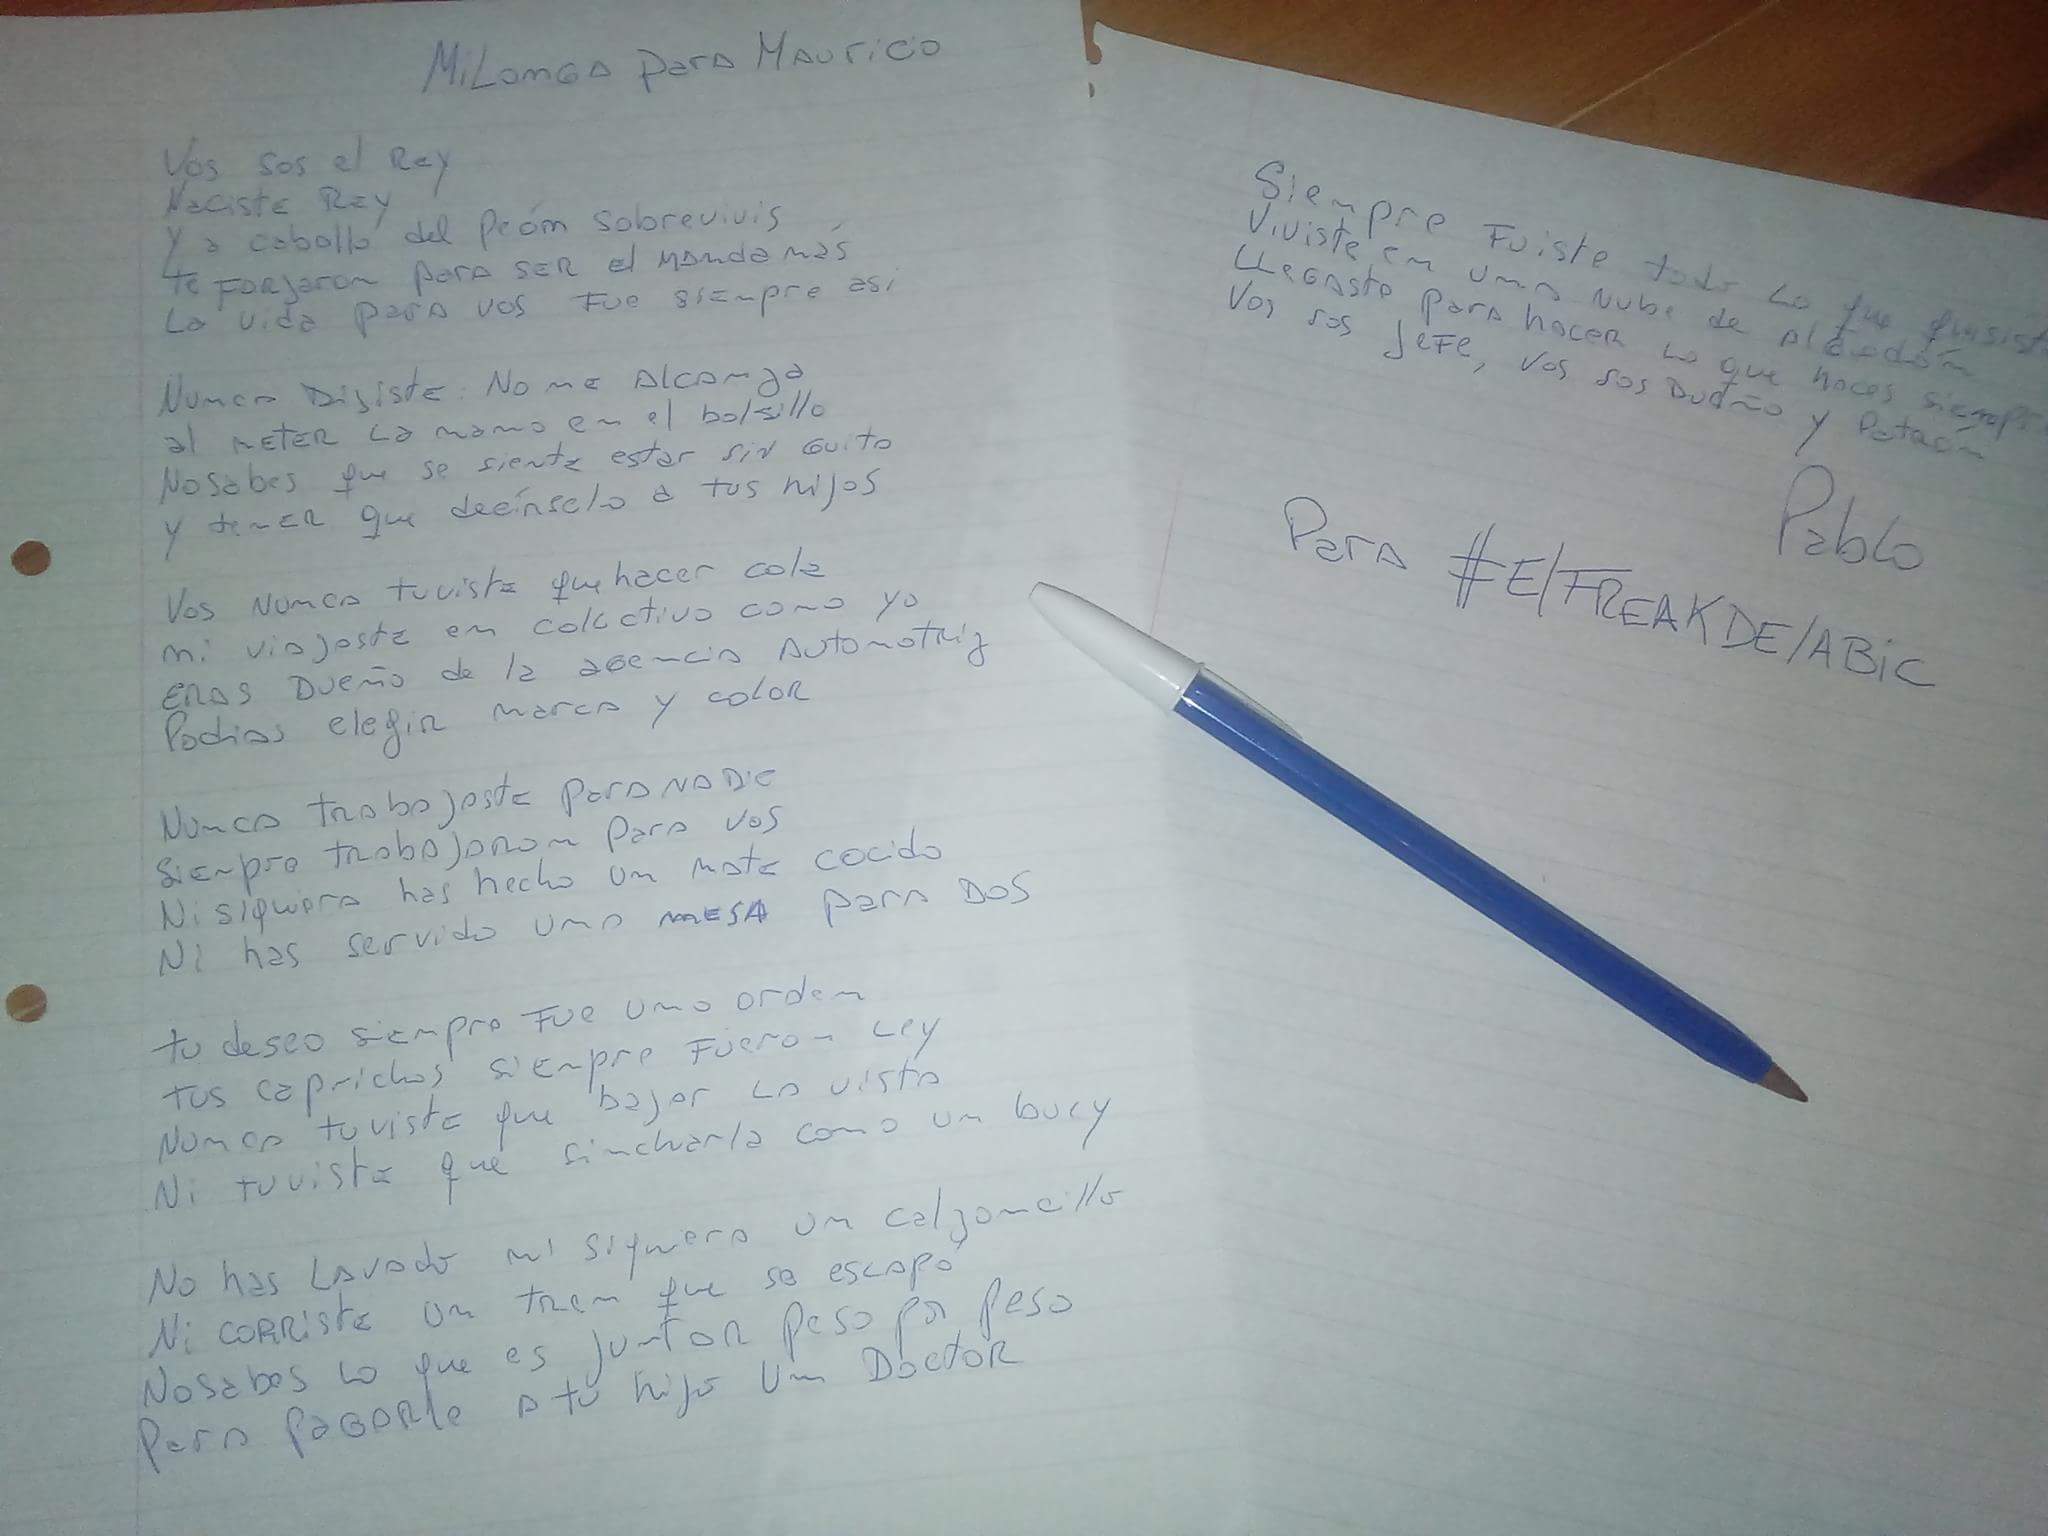 Milonga para Mauricio
Vos sos el Rey
Naciste Rey
Y a caballo del peón sobrevivis
te Forjaron para ser el mandamás
La vida para vos fue siempre asi
Nunca Dijiste: No me alcanza
al meter la mano en el bolsillo
No sabes que se siente estar sin Guita
y tener que decírselo a tus hijos
Vos Nunca tuviste que hacer cola
ni viajaste en colectivo como yo
eras Dueño de la agencia Automotriz
Podias elegir marca y color
Nunca trabajaste para nadie
siempre trabajaron para vos
Ni siquiera has hecho un mate cocido
Ni has servido una mesa para Dos
tu deseo siempre Fue una orden
tus caprichos siempre Fueron Ley
Nunca tuviste que bajar la vista
Ni tuviste que sincharla como un buey
No has Lavado ni siquiera un calzoncillo
Ni corriste un tren que se escapó
No sabes lo que es juntar peso por peso
Para pagarle a tu hijo un Doctor
Siempre Fuiste todo lo que quisist
Viviste en una nube de algodón
LLegaste para hacer lo que haces siempr
Vos sos Jefe, vos sos Dueño y Patrón
Pablo
Para #E/FREAKDE/ABIC